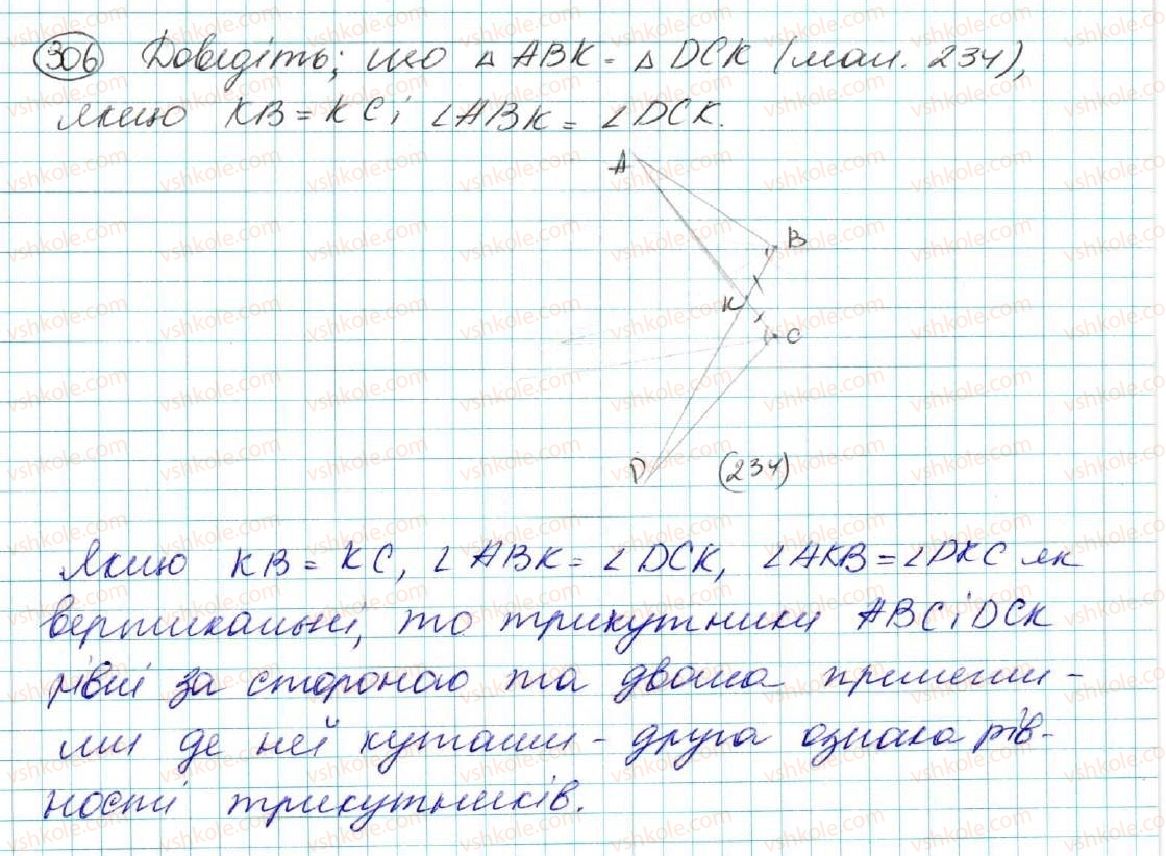 306 Доведіть, що △ ABK = △ DCK (мал. 234),
якщо KB = KC і ∠ABK = ∠DCK.
A
B
K
C
D (234)
Якщо KB = KC, ∠ABK = ∠DCK, ∠AKB = ∠DKC як
вертикальні, то трикутники ABC і DCK
рівні за стороною та двома прилегли-
ми де неї кутами - друга ознака рів-
ності трикутників.
vshkole.com